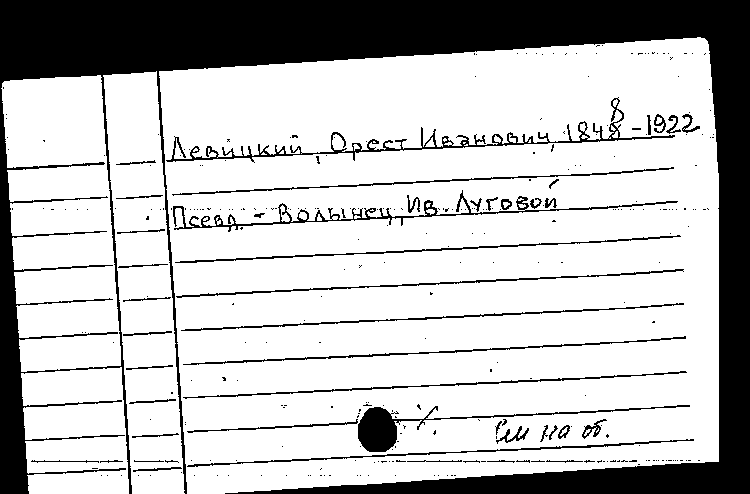 Левицкий, Орест Иванович, 1848-1922
Псевд. - Волынец, Ив. Луговой
См на об.